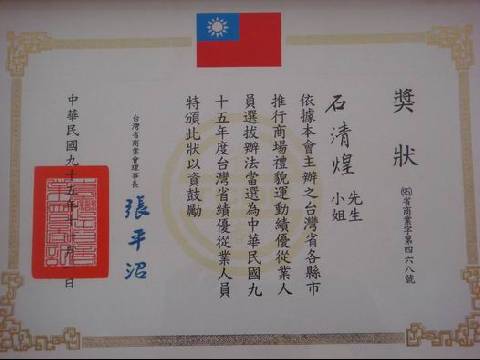 獎狀
(95)省商業字第四六八號
石清煌 先生
小姐
依據本會主辦之台灣省各縣市
推行商場禮貌運動績優從業人
員選拔辦法當選為中華民國九
十五年度台灣省績優從業人員
特頒此狀以資鼓勵
台灣省商業會理事長
張平沼
中華民國九十五年十月 日